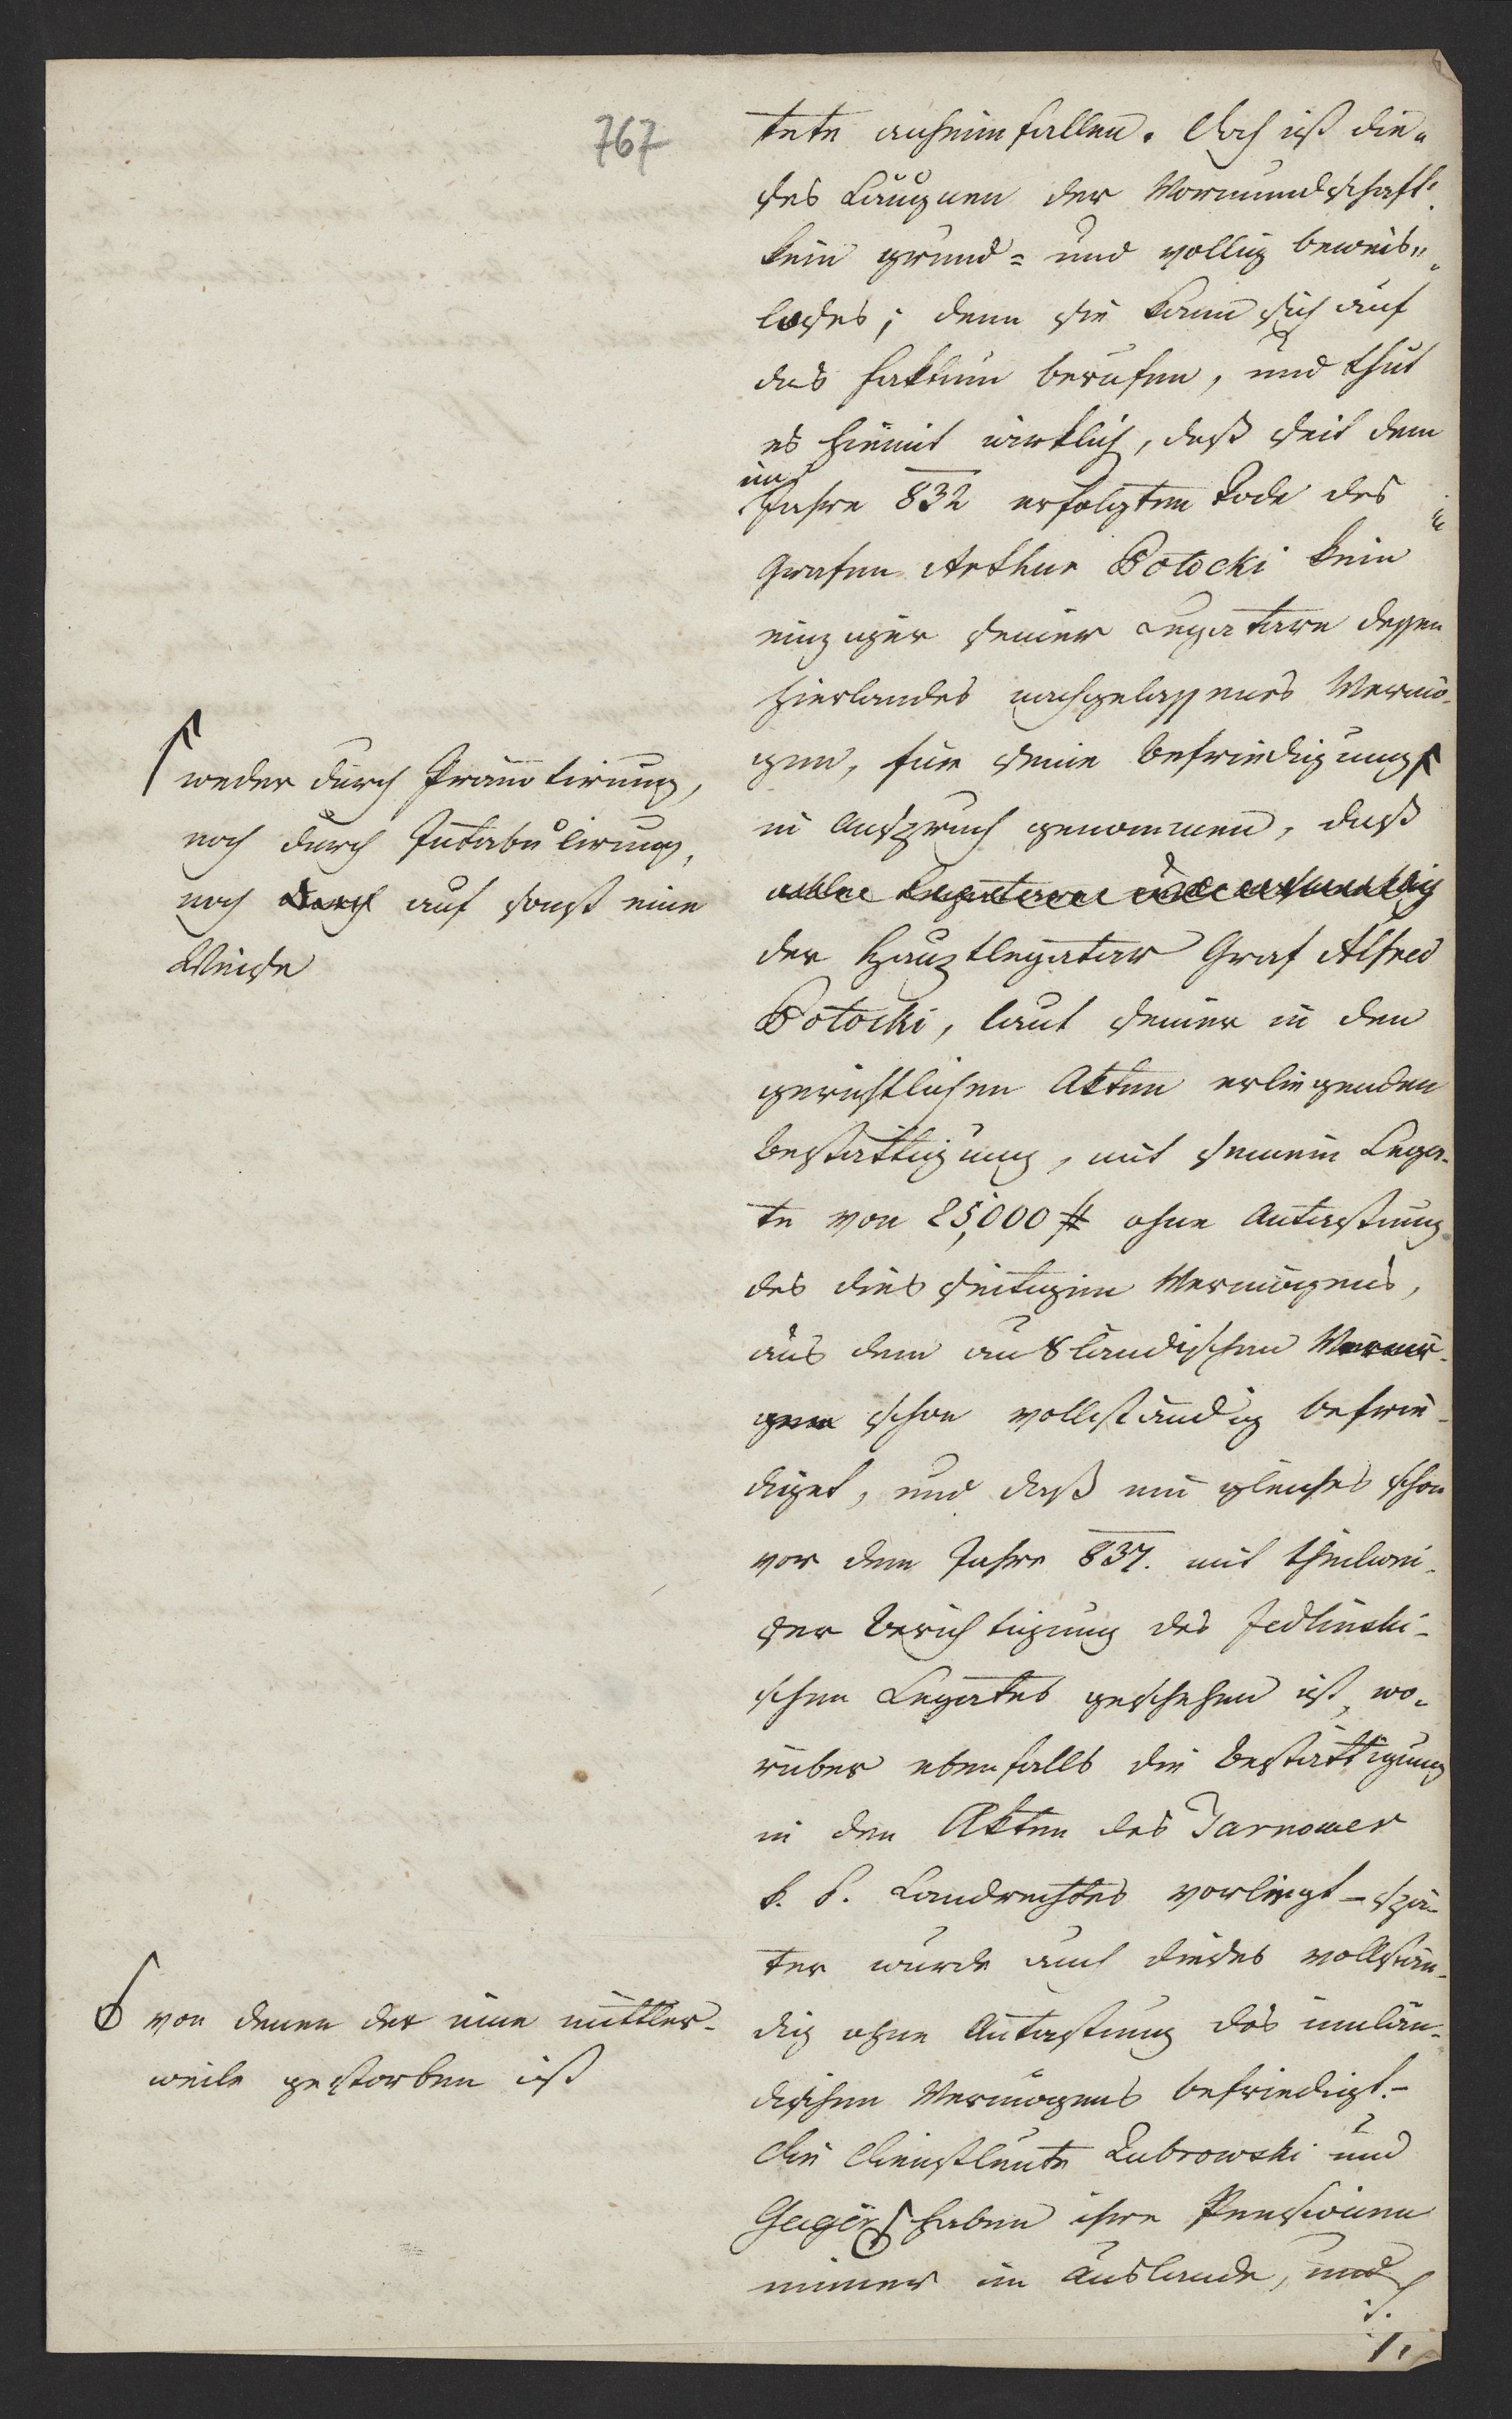 767
tete anheimfallen. Doch ist die„
ses Läugnen der Vormundschaft
kein grund= und völlig beweis„
loses; denn sie kann sich auf
das Faktum berufen, und thut
es hiemit wirklich, daß seit dem
im
Jahre 832 erfolgten Tode des
Grafen Arthur Potocki kein
einziger seiner Legatare dessen
hierlandes nachgelassenes Vermö-
gen, für seine Befriedigung
in Anspruch genommen, daß
der Hauptlegatar Graf Alfred
Potocki, laut seiner in den
gerichtlichen Akten erliegenden
Bestättigung, mit seinem Lega-
te von 25,000 # ohne Antastung
des dies seitigen Vermögens,
aus dem ausländischen Vermö-
gen schon vollständig befrie-
diget, und daß ein gleiches schon
vor dem Jahre 837. mit theilwei-
ser Berichtigung des Jedlinski-
schen Legates geschehen ist, wo-
rüber ebenfalls die Bestättigung
in den Akten des Tarnower
k. k. Landrechtes vorliegt – spä-
ter wurde auch dieses vollstän-
dig ohne Antastung des inlän-
dischen Vermögens befriedigt.–
Die Dienstleute Dubrowski und
Geiger haben ihre Pensionen
immer im Auslande, und
weder durch Pränotirung,
noch durch Intabulirung,
noch durch auf sonst eine
Weise
von denen der eine mittler-
weile gestorben ist